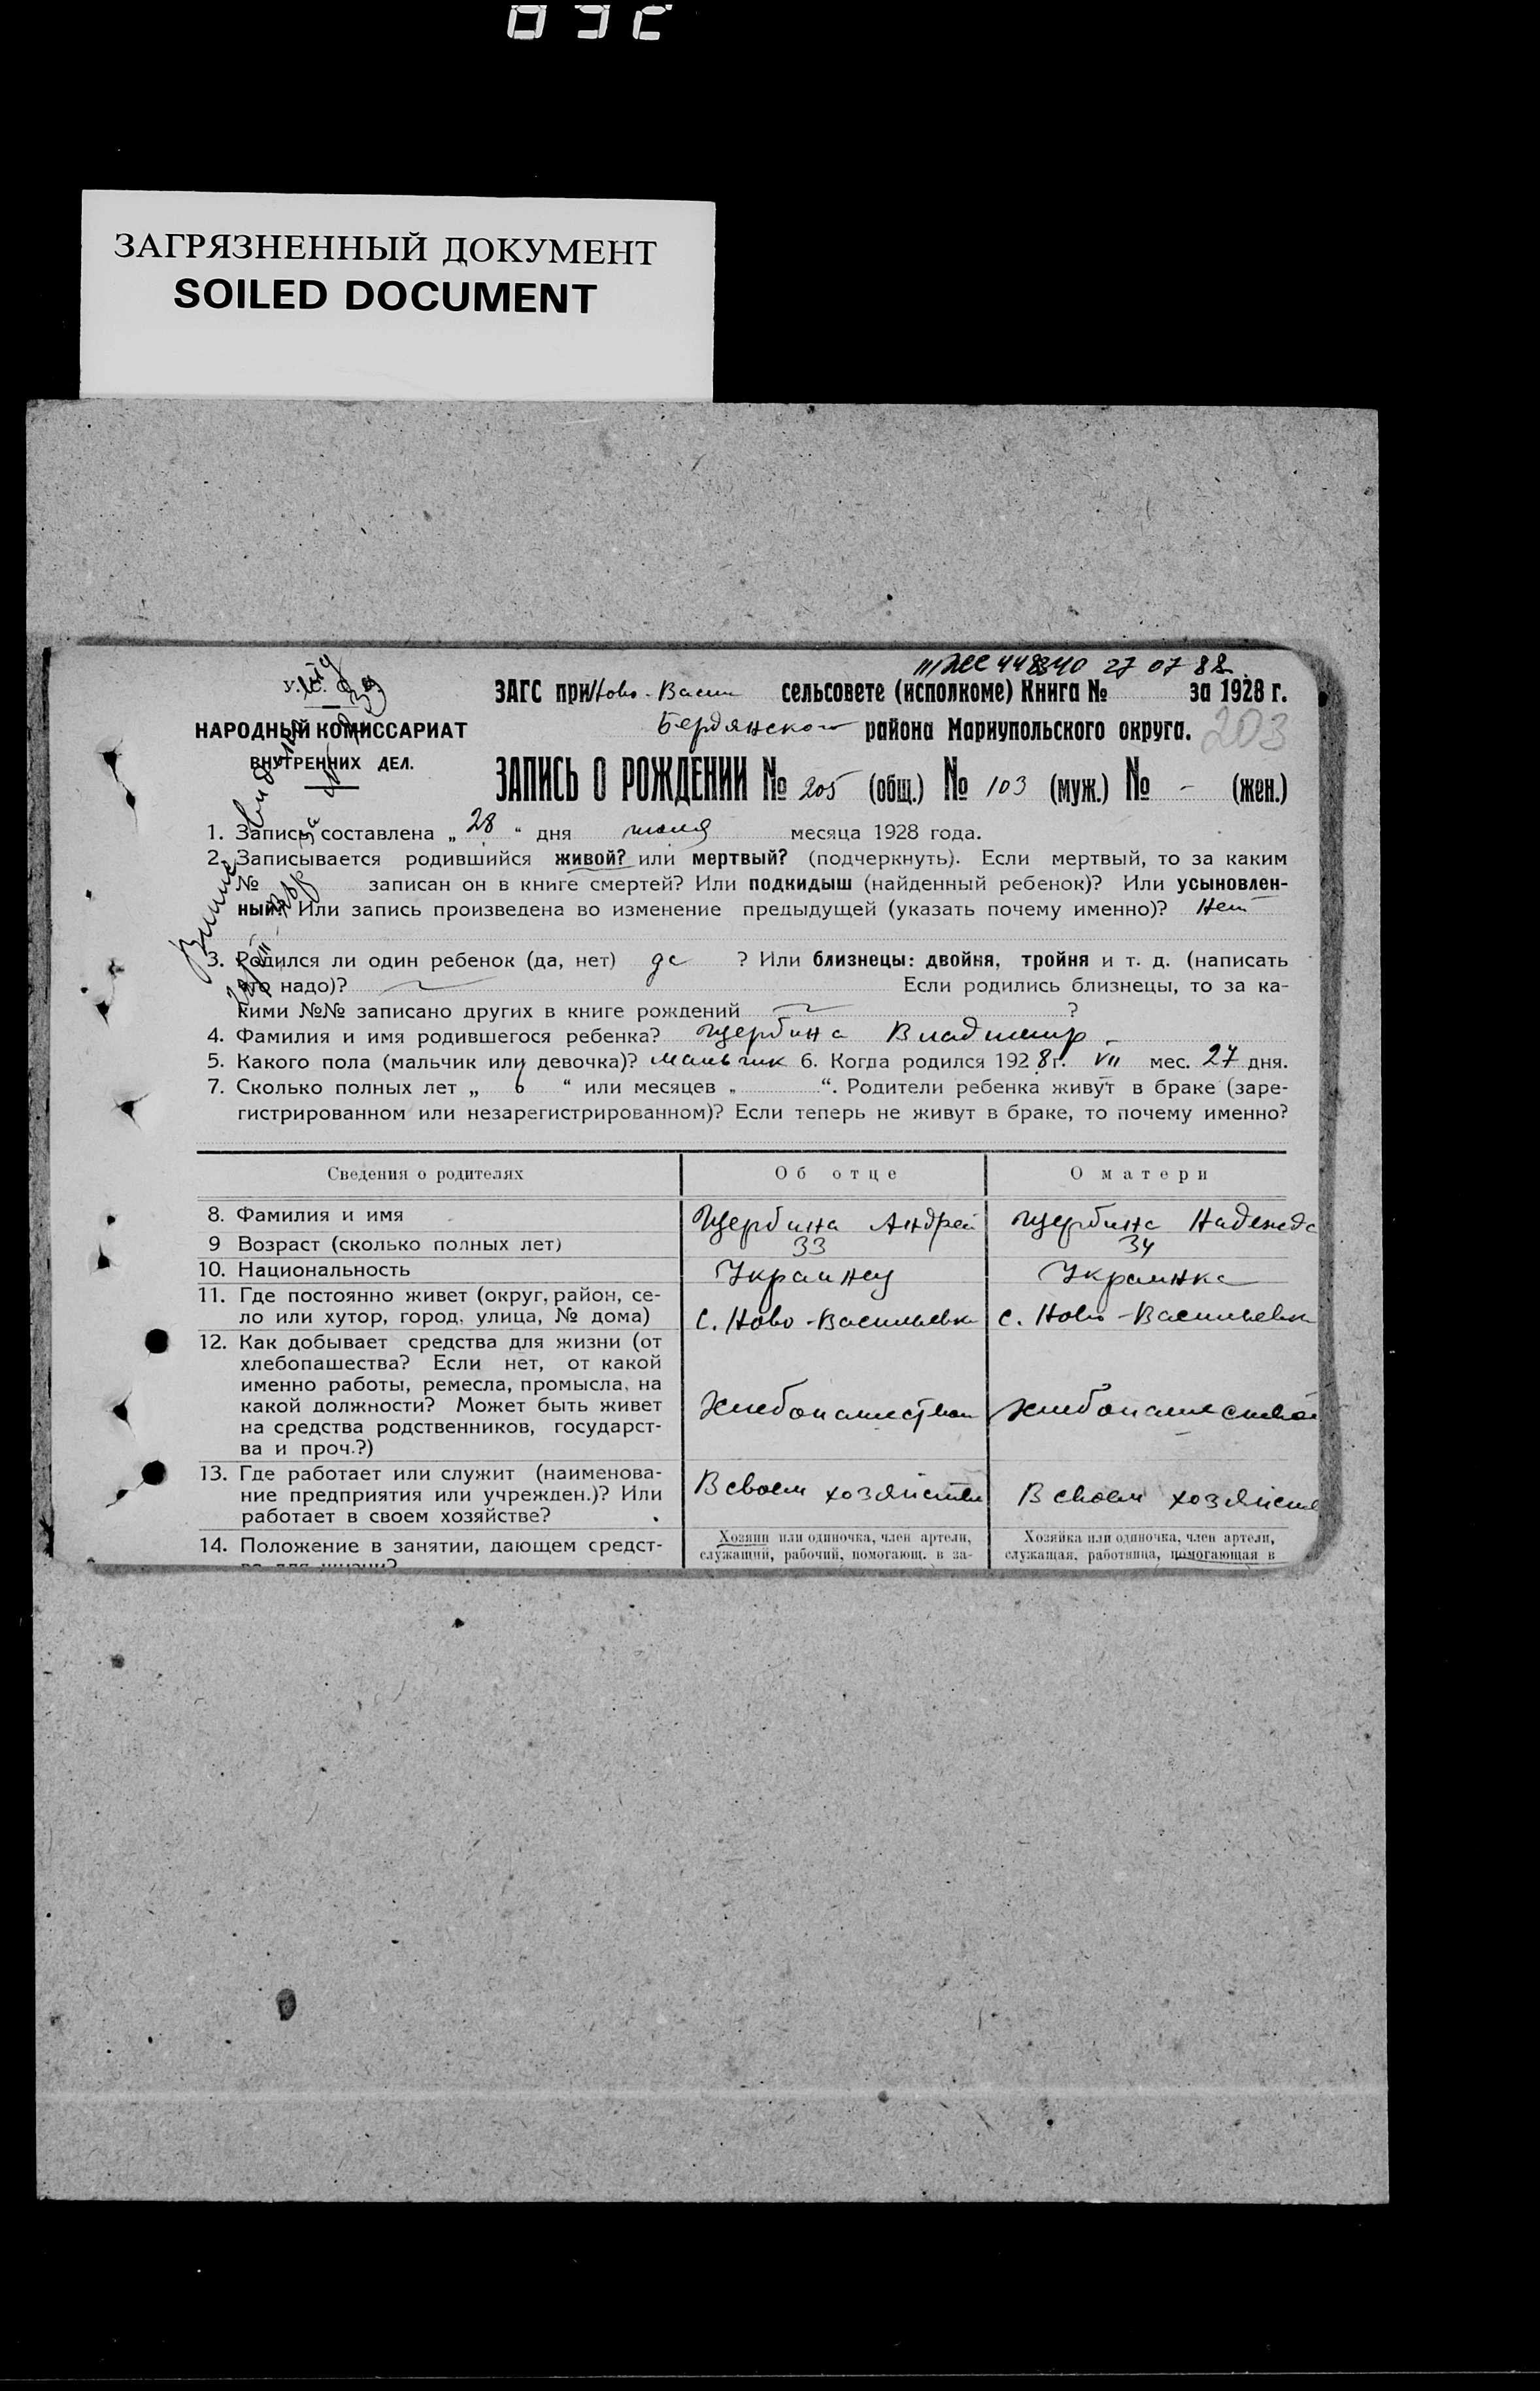 ЗАГРЯЗНЕННЫЙ ДОКУМЕНТ
SOILED DOCUMENT
448340 27 07 88
ЗАГС при Ново-Васил сельсовете (исполкоме) Книга № за 1928 г.
НАРОДНЫЙ КОМИССАРИАТ
Бердянского района Мариупольского округа. 203
ВНУТРЕННИХ ДЕЛ.
ЗАПИСЬ О РОЖДЕНИИ № 205 (общ.) № 103 (муж.) № - (жен.)
1. Запись составлена „ 28 “ дня июля месяца 1928 года.
2. Записывается родившийся живой? или мертвый? (подчеркнуть). Если мертвый, то за каким
№ записан он в книге смертей? Или подкидыш (найденный ребенок)? Или усыновлен-
ный? Или запись произведена во изменение предыдущей (указать почему именно)? Нет
3. Родился ли один ребенок (да, нет) да ? Или близнецы: двойня, тройня и т. д. (написать
что надо)? Если родились близнецы, то за ка-
кими №№ записано других в книге рождений ?
4. Фамилия и имя родившегося ребенка? Щербина Владимир
5. Какого пола (мальчик или девочка)? мальчик 6. Когда родился 1928 г. VII мес. 27 дня.
7. Сколько полных лет „ 6 “ или месяцев „ “. Родители ребенка живут в браке (заре-
гистрированном или незарегистрированном)? Если теперь не живут в браке, то почему именно?
Сведения о родителях Об отце О матери
8. Фамилия и имя Щербина Андрей Щербина Надежда
9 Возраст (сколько полных лет) 33 34
10. Национальность Украинец Украинка
11. Где постоянно живет (округ, район, се-
ло или хутор, город, улица, № дома) с. Ново-Васильевка с. Ново-Васильевка
12. Как добывает средства для жизни (от
хлебопашества? Если нет, от какой
именно работы, ремесла, промысла, на
какой должности? Может быть живет Хлебопашеством Хлебопашеством
на средства родственников, государст-
ва и проч.?)
13. Где работает или служит (наименова-
ние предприятия или учрежден.)? Или В своем хозяйстве В своем хозяйстве
работает в своем хозяйстве?
14. Положение в занятии, дающем средст- Хозяин или одиночка, член артели, Хозяйка или одиночка, член артели,
ва для жизни? служащий, рабочий, помогающ. в за- служащая, работница, помогающая в